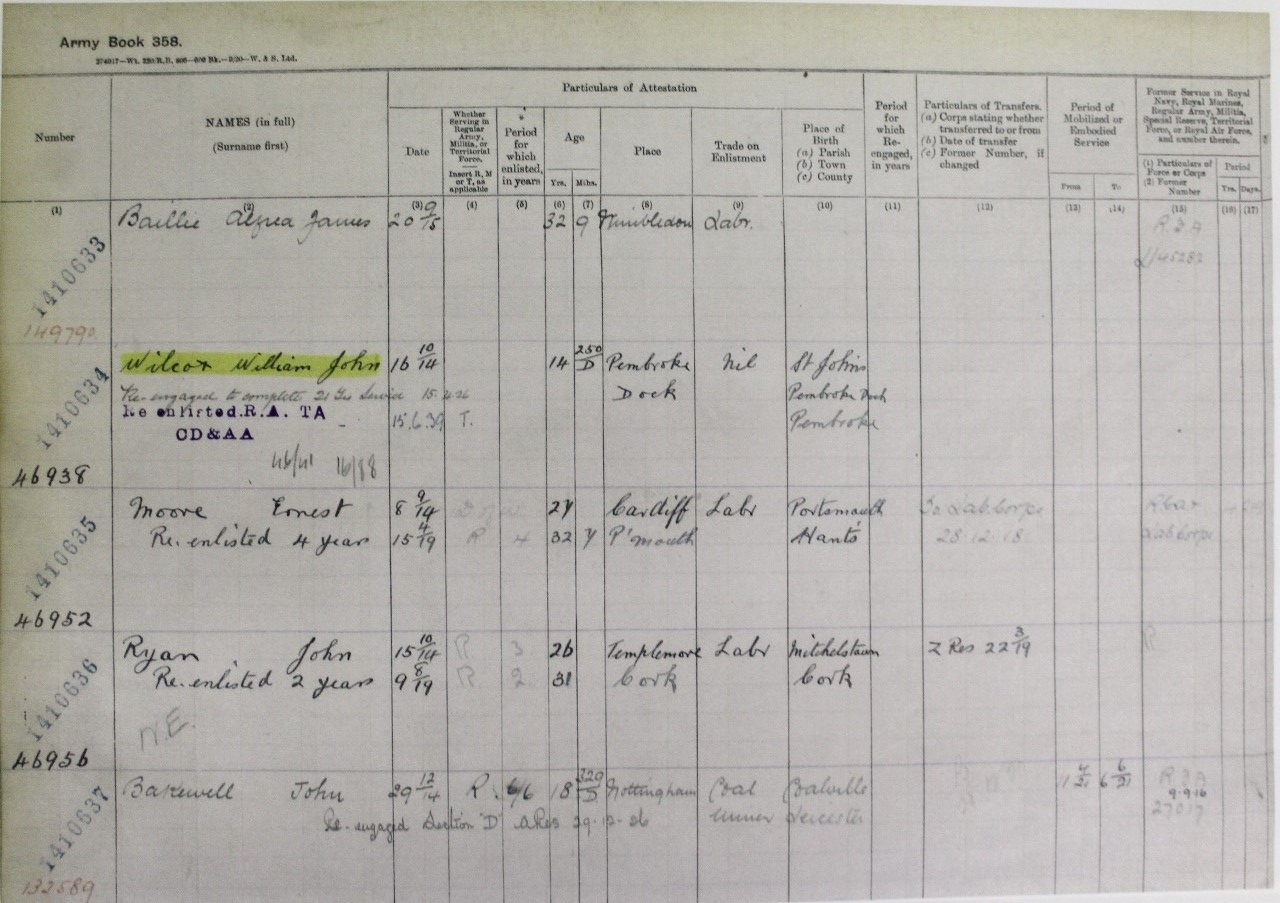 Army Book 358.
Particulars of Attestation
Number
NAMES (in full)
(Surname first)
Date
Whether Serving in Regular Army, Militia, or Territorial Force.
Insert R, M or T, as applicable
Period for which enlisted, in years
Age
Yrs.
Mths.
Place
Trade on Enlistment
Place of Birth
(a) Parish
(b) Town
(c) County
Period for which Re-engaged, in years
Particulars of Transfers.
(a) Corps stating whether transferred to or from
(b) Date of transfer
(c) Former Number, if changed
Period of Mobilized or Embodied Service
From
To
Former Service in Royal Navy, Royal Marines, Regular Army, Militia, Special Reserve, Territorial Force, or Royal Air Force, and number therein.
(1) Particulars of Force or Corps
(2) Former Number
Period
Yrs.
Days.
(1) (2) (3) (4) (5) (6) (7) (8) (9) (10) (11) (12) (13) (14) (15) (16) (17)
1410633
Baillie Alfred James 20 9/15 32 9 Wimbledon Labr.
L/45282
149790
1410634
Wilcox William John 16 10/14 14 250/D Pembroke Nil St Johns
Re-engaged to complete 21 Yrs Service 15 4 26 Dock Pembroke Dock
Re enlisted.R.A. TA 15.6.39 T. Pembroke
CD&AA
46938
1410635
Moore Ernest 8 9/14 27 Cardiff Labr Portsmouth
Re-enlisted 4 years 15 4/19 R 4 32 7 P'mouth Hants 28.12.18
46952
1410636
Ryan John 15 10/14 R 3 26 Templemore Labr Mitchelstown Z Res 22 3/19
Re-enlisted 2 years 9 8/19 R 2 31 Cork Cork
N.E.
46956
1410637
Bakewell John 29 12/14 R. 6/6 18 329/D Nottingham Coal Coalville
Re-engaged Section "D" ARes 29-12-26 Leicester
9.9.16
27017
132589